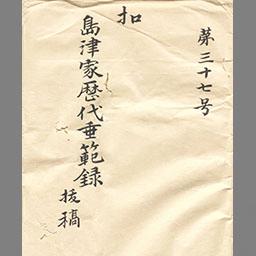 第三十七号
扣
島津家歴代垂範録
抜稿